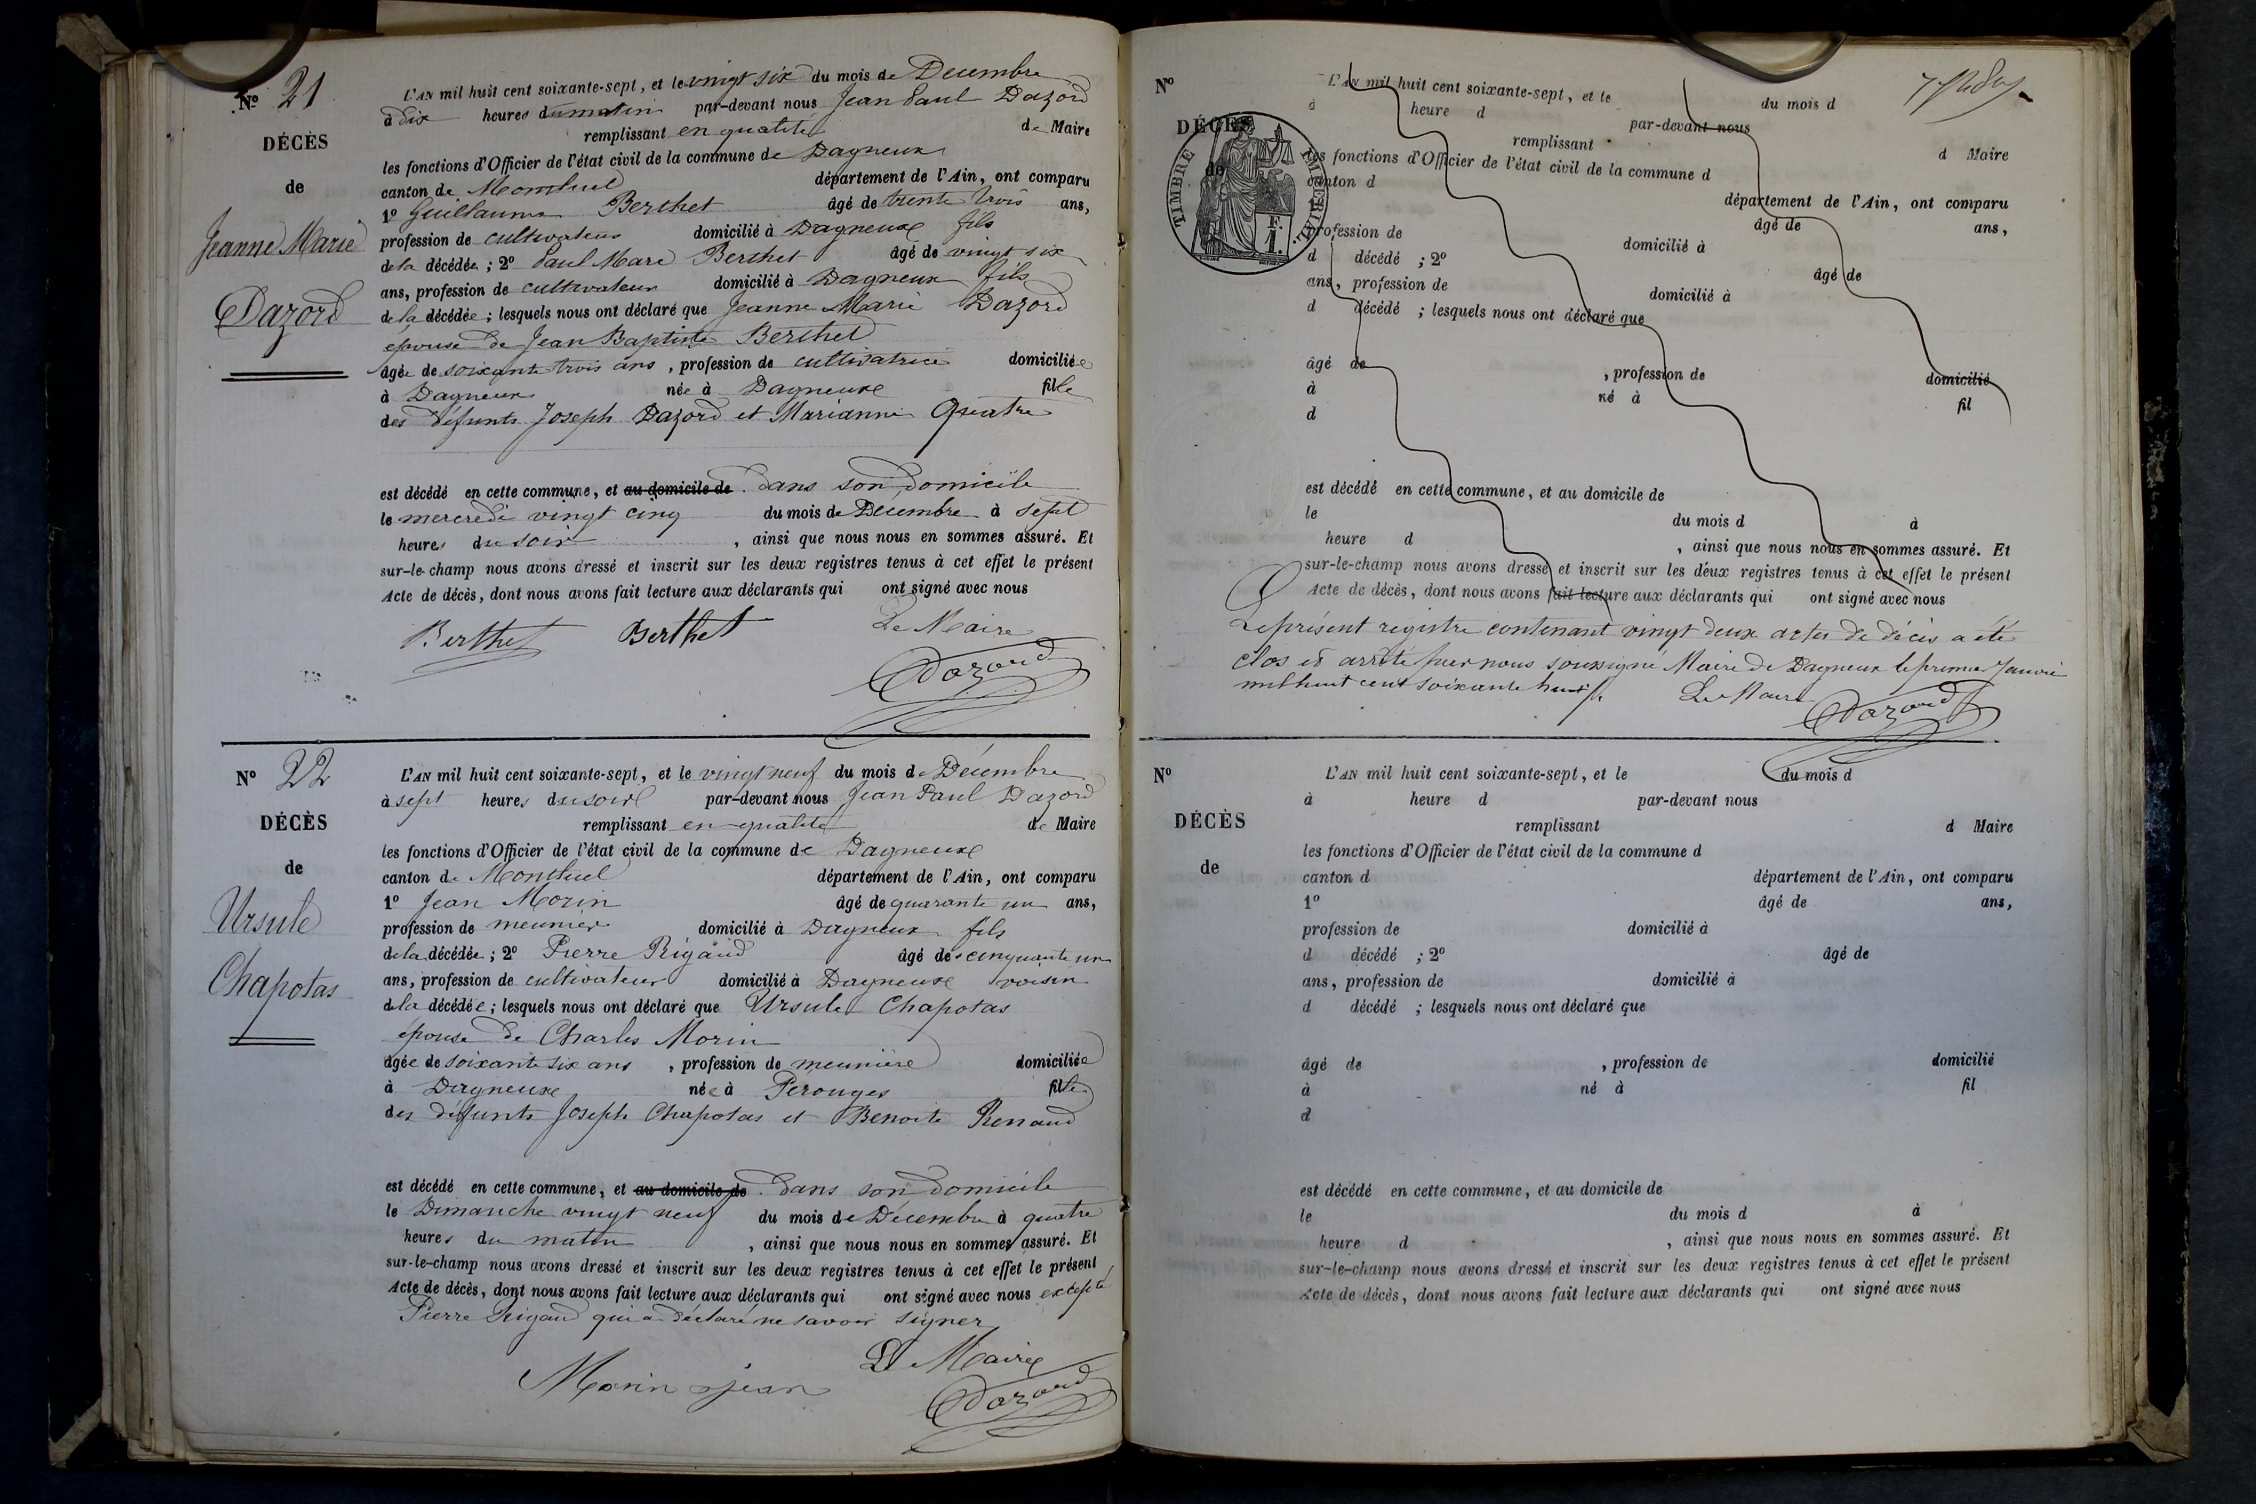 Nº 21
DÉCÈS
de
Jeanne Marie
Dazord
L'AN mil huit cent soixante-sept, et le vingt six du mois de Decembre
à dix heures du matin par-devant nous Jean Paul Dazord
remplissant en qualité de Maire
les fonctions d'Officier de l'état civil de la commune de Dagneux
canton de Montluel département de l'Ain, ont comparu
1º Guillaume Berthet âgé de trente trois ans,
profession de cultivateur domicilié à Dagneux fils
de la décédée ; 2º Paul Marc Berthet âgé de vingt six
ans, profession de cultivateur domicilié à Dagneux fils
de la décédée ; lesquels nous ont déclaré que Jeanne Marie Dazord
epouse de Jean Baptiste Berthet
âgée de soixante trois ans, profession de cultivatrice domiciliée
à Dagneux née à Dagneux fille
des défunts Joseph Dazord et Marianne Quatre
est décédé en cette commune, et au domicile de dans son domicile
le mercredi vingt cinq du mois de Decembre à sept
heures du soir, ainsi que nous nous en sommes assuré. Et
sur-le-champ nous avons dressé et inscrit sur les deux registres tenus à cet effet le présent
Acte de décès, dont nous avons fait lecture aux déclarants qui ont signé avec nous
Berthet Berthet Le Maire
Dazord
Nº 22
DÉCÈS
de
Ursule
Chapotas
L'AN mil huit cent soixante-sept, et le vingt neuf du mois de Décembre
à sept heures du soir par-devant nous Jean Paul Dazord
remplissant en qualité de Maire
les fonctions d'Officier de l'état civil de la commune de Dagneux
canton de Montluel département de l'Ain, ont comparu
1º Jean Morin âgé de quarante un ans,
profession de meunier domicilié à Dagneux fils
de la décédée ; 2º Pierre Rigaud âgé de cinquante un
ans, profession de cultivateur domicilié à Dagneux voisin
de la décédée ; lesquels nous ont déclaré que Ursule Chapotas
epouse de Charles Morin
âgée de soixante six ans, profession de meunière domiciliée
à Dagneux née à Perouges fille
des défunts Joseph Chapotas et Benoite Renaud
est décédé en cette commune, et au domicile de dans son domicile
le Dimanche vingt neuf du mois de Décembre à quatre
heures du matin, ainsi que nous nous en sommes assuré. Et
sur-le-champ nous avons dressé et inscrit sur les deux registres tenus à cet effet le présent
Acte de décès, dont nous avons fait lecture aux déclarants qui ont signé avec nous excepté
Pierre Rigaud qui a déclaré ne savoir signer
Le Maire
Morin jean Dazord
Nº
DÉCÈS
de
TIMBRE IMPÉRIAL
F.
1.
L'AN mil huit cent soixante-sept, et le du mois d
à heure d par-devant nous
remplissant d Maire
les fonctions d'Officier de l'état civil de la commune d
canton d département de l'Ain, ont comparu
âgé de ans,
profession de domicilié à
d décédé ; 2º âgé de
ans, profession de domicilié à
d décédé ; lesquels nous ont déclaré que
âgé de , profession de domicilié
à né à fil
d
est décédé en cette commune, et au domicile de
le du mois d à
heure d , ainsi que nous nous en sommes assuré. Et
sur-le-champ nous avons dressé et inscrit sur les deux registres tenus à cet effet le présent
Acte de décès, dont nous avons fait lecture aux déclarants qui ont signé avec nous
Le présent registre contenant vingt deux actes de décès a été
clos et arrêté par nous soussigné Maire de Dagneux le premier Janvier
mil huit cent soixante huit. Le Maire
Dazord
Nº
DÉCÈS
de
L'AN mil huit cent soixante-sept, et le du mois d
à heure d par-devant nous
remplissant d Maire
les fonctions d'Officier de l'état civil de la commune d
canton d département de l'Ain, ont comparu
1º âgé de ans,
profession de domicilié à
d décédé ; 2º âgé de
ans, profession de domicilié à
d décédé ; lesquels nous ont déclaré que
âgé de , profession de domicilié
à né à fil
d
est décédé en cette commune, et au domicile de
le du mois d à
heure d , ainsi que nous nous en sommes assuré. Et
sur-le-champ nous avons dressé et inscrit sur les deux registres tenus à cet effet le présent
Acte de décès, dont nous avons fait lecture aux déclarants qui ont signé avec nous